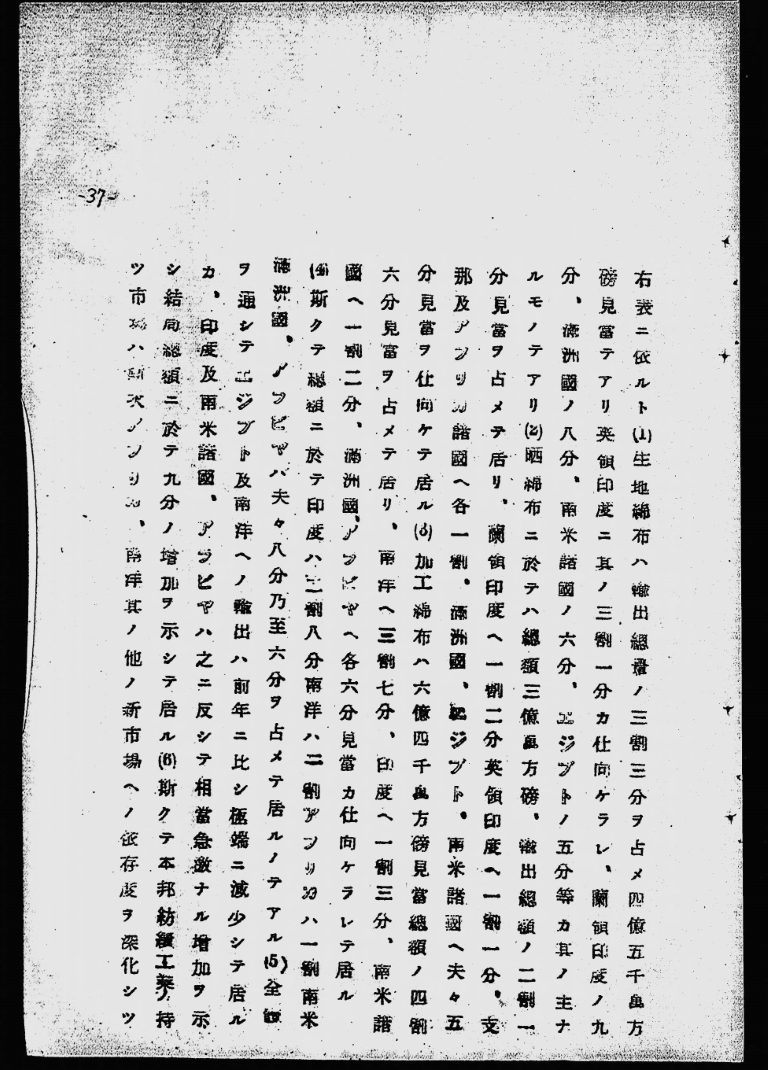 -37-
右表ニ依ルト(1)生地綿布ハ輸出總量ノ三割三分ヲ占メ四億五千萬方
磅見當テアリ英領印度ニ其ノ三割一分カ仕向ケラレ、蘭領印度ノ九
分、滿洲國ノ八分、南米諸國ノ六分、エジプトノ五分等カ其ノ主ナ
ルモノテアリ(2)晒綿布ニ於テハ總額三億萬方磅、輸出總額ノ二割一
分見當ヲ占メテ居リ、蘭領印度ヘ一割二分英領印度ヘ一割一分、支
那及アフリカ諸國ヘ各一割、滿洲國、エジプト、南米諸國ヘ夫々五
分見當ヲ仕向ケテ居ル(3)加工綿布ハ六億四千萬方磅見當總額ノ四割
六分見當ヲ占メテ居リ、南洋ヘ三割七分、印度ヘ一割三分、南米諸
國ヘ一割二分、滿洲國、アラビヤヘ各六分見當カ仕向ケラレテ居ル
(4)斯クテ總額ニ於テ印度ハ二割八分南洋ハ二割アフリカハ一割南米
滿洲國、アラビヤハ夫々八分乃至六分ヲ占メテ居ルノテアル(5)全
ヲ通シテエジプト及南洋ヘノ輸出ハ前年ニ比シ極端ニ減少シテ居ル
カ、印度及南米諸國、アラビヤハ之ニ反シテ相當急激ナル增加ヲ示
シ結局總額ニ於テ九分ノ增加ヲ示シテ居ル(6)斯クテ本邦紡績工業ノ持
ツ市場ハ漸次アフリカ、南洋其ノ他ノ新市場ヘノ依存度ヲ深化シツ